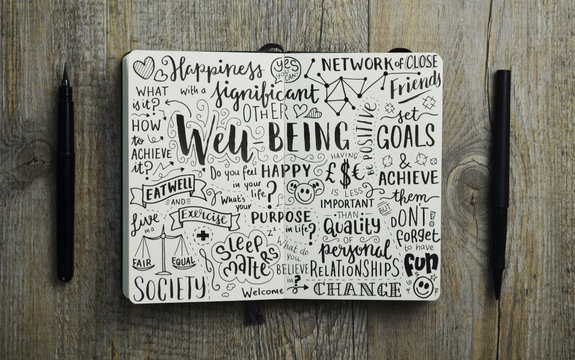 Happiness
WHAT
is it?
HOW
to
ACHIEVE
it?
with a
significant
OTHER
YES
YOU
CAN
NETWORK OF CLOSE
Friends
Well-BEING
BE POSITIVE
set
GOALS
&
ACHIEVE
them
Do you feel HAPPY
in your life?
HAVING
£$€
IS LESS
IMPORTANT
THAN
Quality
of
personal
RELATIONSHIPS
BUT
DON'T!
forget
to have
FUN
EATWELL
AND
Exercise!
What's
your
PURPOSE
in life?
Live
in a
FAIR
EQUAL
SOCIETY
SLEEP
MATTERS
What do
you
BELIEVE
in?
Welcome
CHANGE